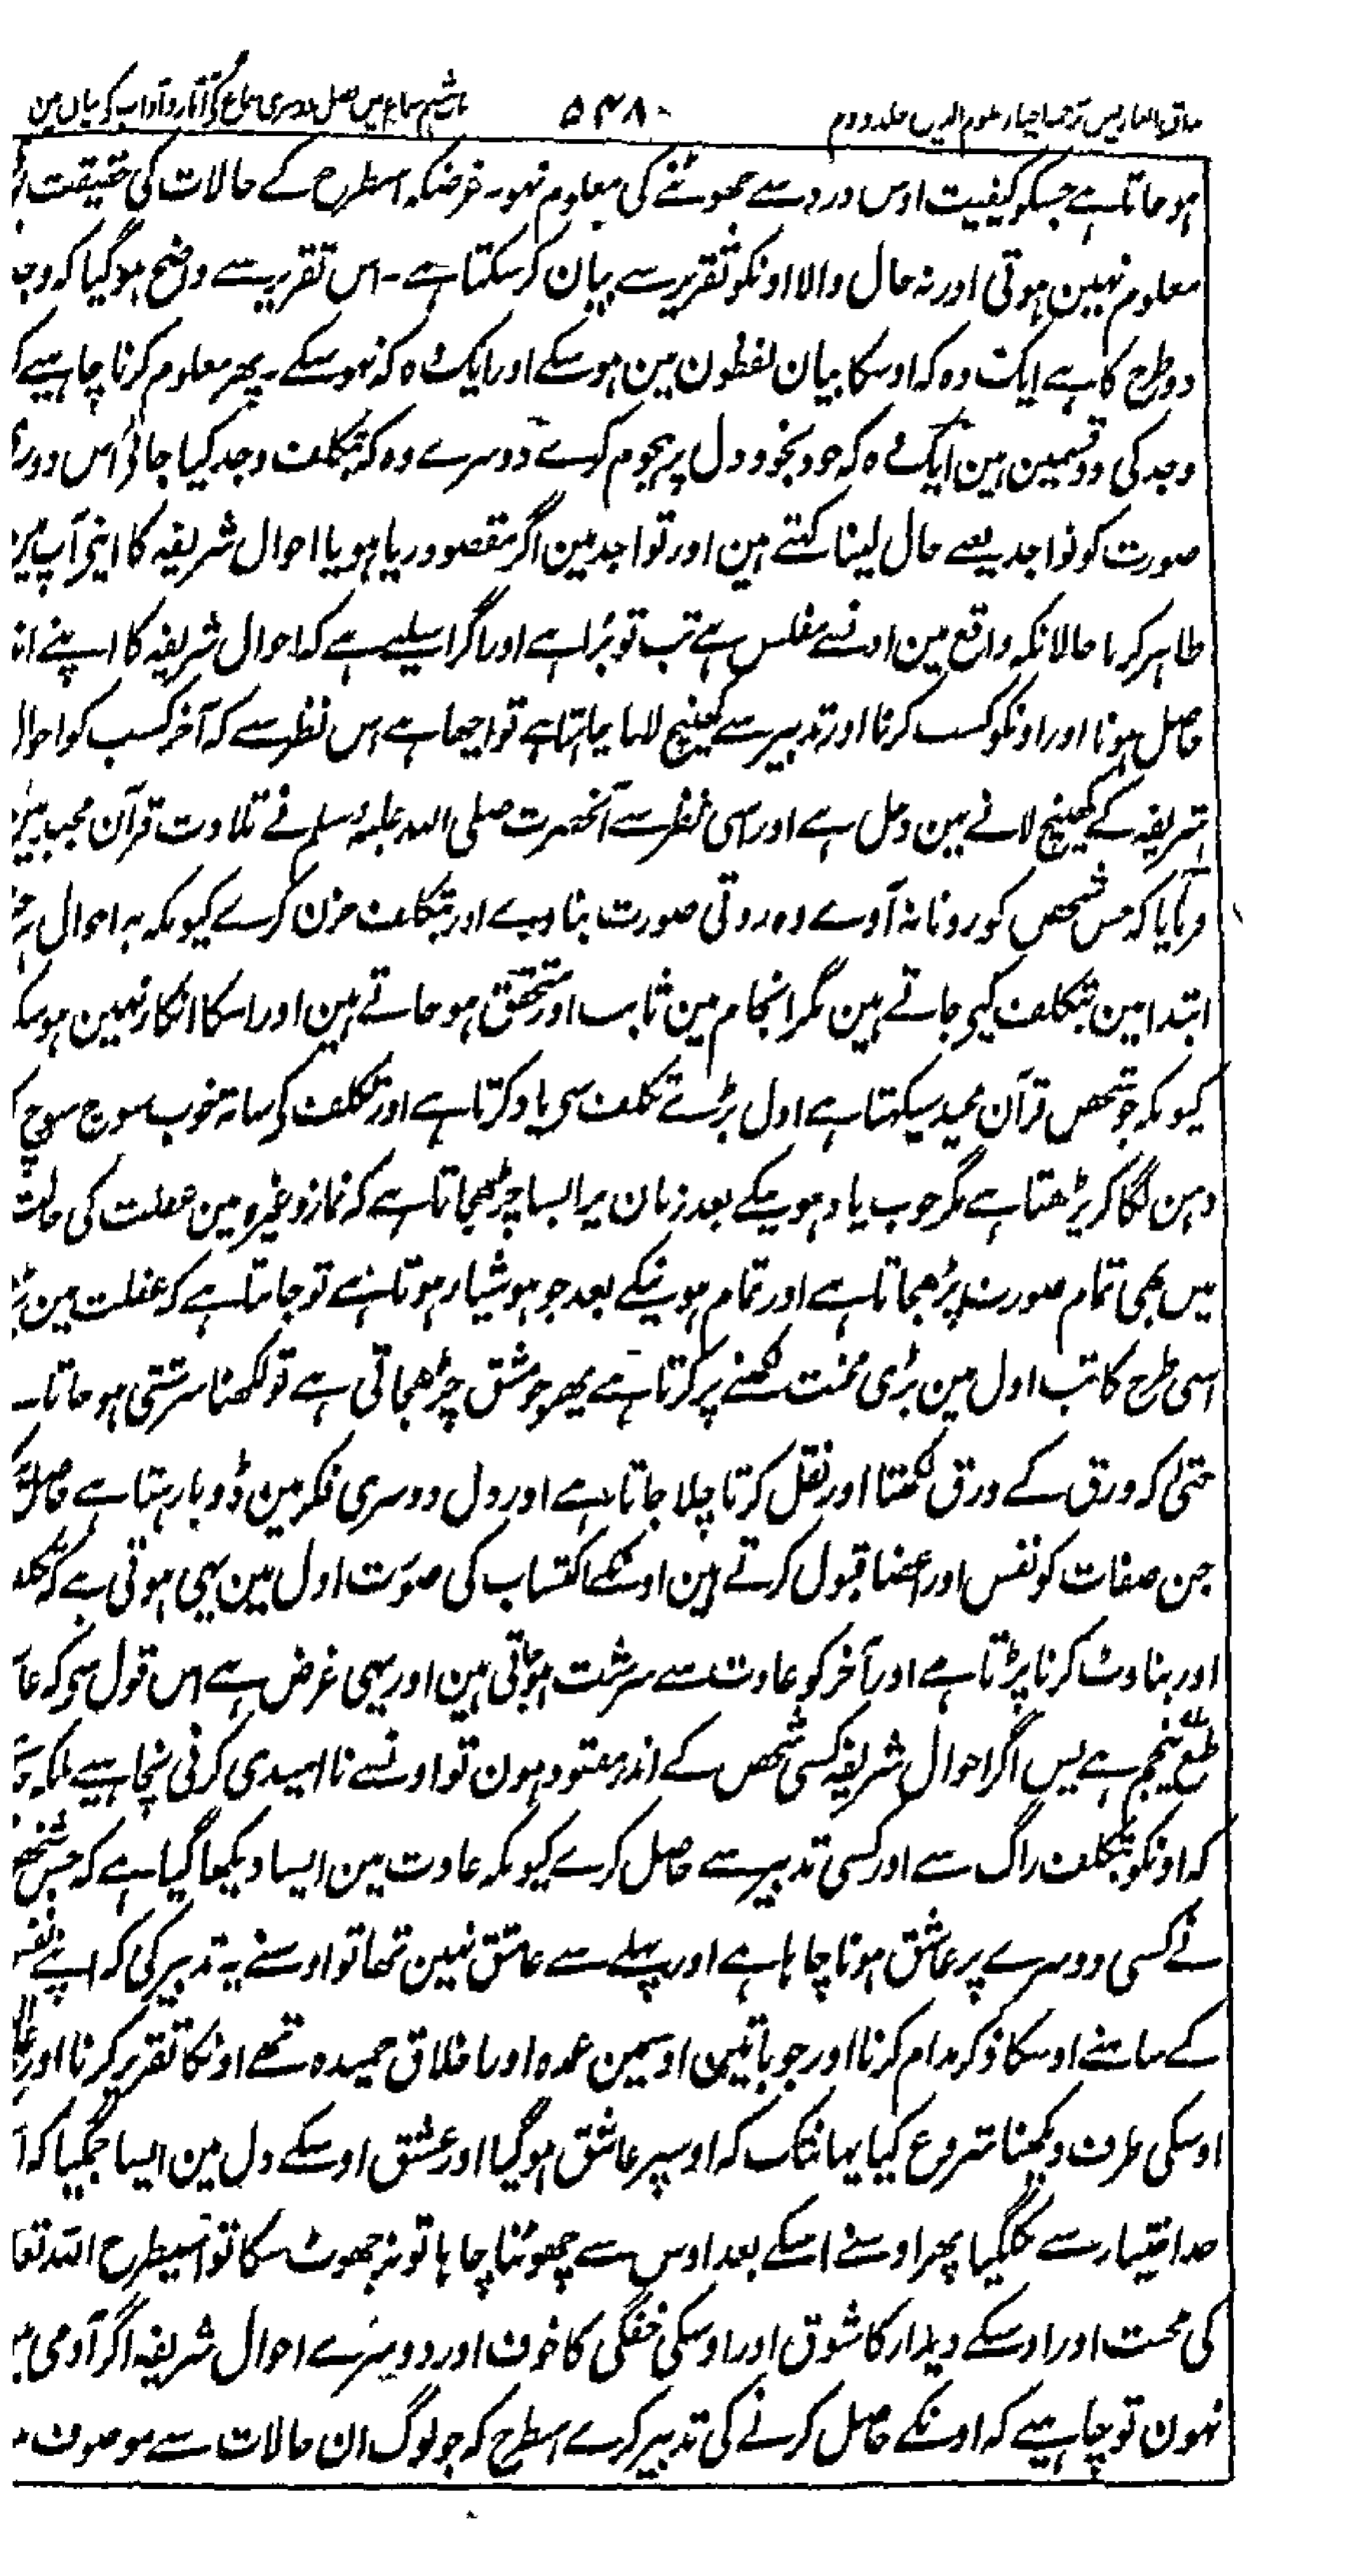 مذاق العارفین ترجمہ احیاء علوم الدین جلد دوم ۵۴۸ باب ہشتم سماع میں فصل دوسری سماع کے آثار و آداب کے بیان مین
ہو جاتا ہے جسکو کیفیت اوس درد سے چھوٹنے کی معلوم نہو۔ غرضکہ اسطرح کے حالات کی حقیقت
معلوم نہین ہوتی اور نہ حال والا اونکو تقریر سے بیان کر سکتا ہے۔ اس تقریر سے واضح ہو گیا کہ وجد
دو طرح کا ہے ایک وہ کہ اوسکا بیان لفظون مین ہو سکے اور ایک وہ کہ نہو سکے۔ پھر معلوم کرنا چاہیے کہ
وجد کی دو قسمین ہین ایک وہ کہ خود بخود دل پر ہجوم کرے دوسرے وہ کہ بتکلف وجد کیا جائے اس دوسری
صورت کو تواجد یعنے حال لینا کہتے ہین اور تواجد مین اگر مقصود ریا ہو یا احوال شریفہ کا اپنے آپ مین
ظاہر کرنا حالانکہ واقع مین اونسے مفلس ہے تب تو بُرا ہے اور اگر اسلیے ہے کہ احوال شریفہ کا اپنے
حاصل ہونا اور اونکو کسب کرنا اور تدبیر سے کھینچ لانا چاہتا ہے تو اچھا ہے اس نظر سے کہ آخر کسب کو احوال
شریفہ کے کھینچ لانے مین دخل ہے اور اسی نظر سے آنحضرت صلی اللہ علیہ وسلم نے تلاوت قرآن مجید مین
فرمایا کہ جس شخص کو رونا نہ آوے وہ روتی صورت بنا دے اور بتکلف حزن کرے کیونکہ یہ احوال
ابتدا مین بتکلف کیے جاتے ہین مگر انجام مین ثابت اور متحقق ہو جاتے ہین اور اسکا انکار نہین ہو سکتا
کیونکہ جو شخص قرآن مجید سیکہتا ہے اول بڑے تکلف سی یاد کرتا ہے اور تکلف کی ساتہ خوب سوچ سوچ
ذہن لگا کر پڑھتا ہے مگر جب یاد ہو چکے بعد زبان پر ایسا چڑھجاتا ہے کہ نماز وغیرہ مین غفلت کی حالت
میں بھی تمام سورت پڑھجاتا ہے اور تمام ہونیکے بعد جو ہوشیار ہوتا ہے تو جانتا ہے کہ غفلت مین
اسی طرح کاتب اول مین بڑی محنت لکھنے پر کرتا ہے پھر جو مشق چڑھجاتی ہے تو لکھنا سرشتی ہو جاتا
حتیٰ کہ ورق کے ورق لکھتا اور نقل کرتا چلا جاتا ہے اور دل دوسری فکر مین ڈوبا رہتا ہے حاصل
جن صفات کو نفس اور اعضا قبول کرتے ہین اونکے اکتساب کی صورت اول مین یہی ہوتی ہے کہ تکلف
اور بناوٹ کرنا پڑتا ہے اور آخر کو عادت سے سرشت ہو جاتی ہین اور یہی غرض ہے اس قول سی کہ
طبع پنجم ہے پس اگر احوال شریفہ کسی شخص کے اندر مفقود ہون تو اونسے نا امیدی کرنی نچاہیے بلکہ
کہ اونکو بتکلف راگ سے اور کسی تدبیر سے حاصل کرے کیونکہ عادت مین ایسا دیکھا گیا ہے کہ جس شخص
نے کسی دوسرے پر عاشق ہونا چاہا ہے اور پہلے سے عاشق نہین تھا تو اوسنے یہ تدبیر کی کہ اپنے نفس
کے سامنے اوسکا ذکر مدام کرنا اور جو باتین اوسمین عمدہ اور اخلاق حمیدہ تھے اونکا تقریر کرنا اور
اوسکی طرف دیکھنا شروع کیا یہانتک کہ اوسپر عاشق ہو گیا اور عشق اوسکے دل مین ایسا جمگیا کہ
حد اختیار سے نکل گیا پھر اوسنے اسکے بعد اوس سے چھوٹنا چاہا تو نہ چھوٹ سکا تو اسیطرح اللہ تعالی
کی محبت اور اوسکے دیدار کا شوق اور اوسکی خفگی کا خوف اور دوسرے احوال شریفہ اگر آدمی
نہون تو چاہیے کہ اونکے حاصل کرنے کی تدبیر کرے اسطرح کہ جو لوگ ان حالات سے موصوف